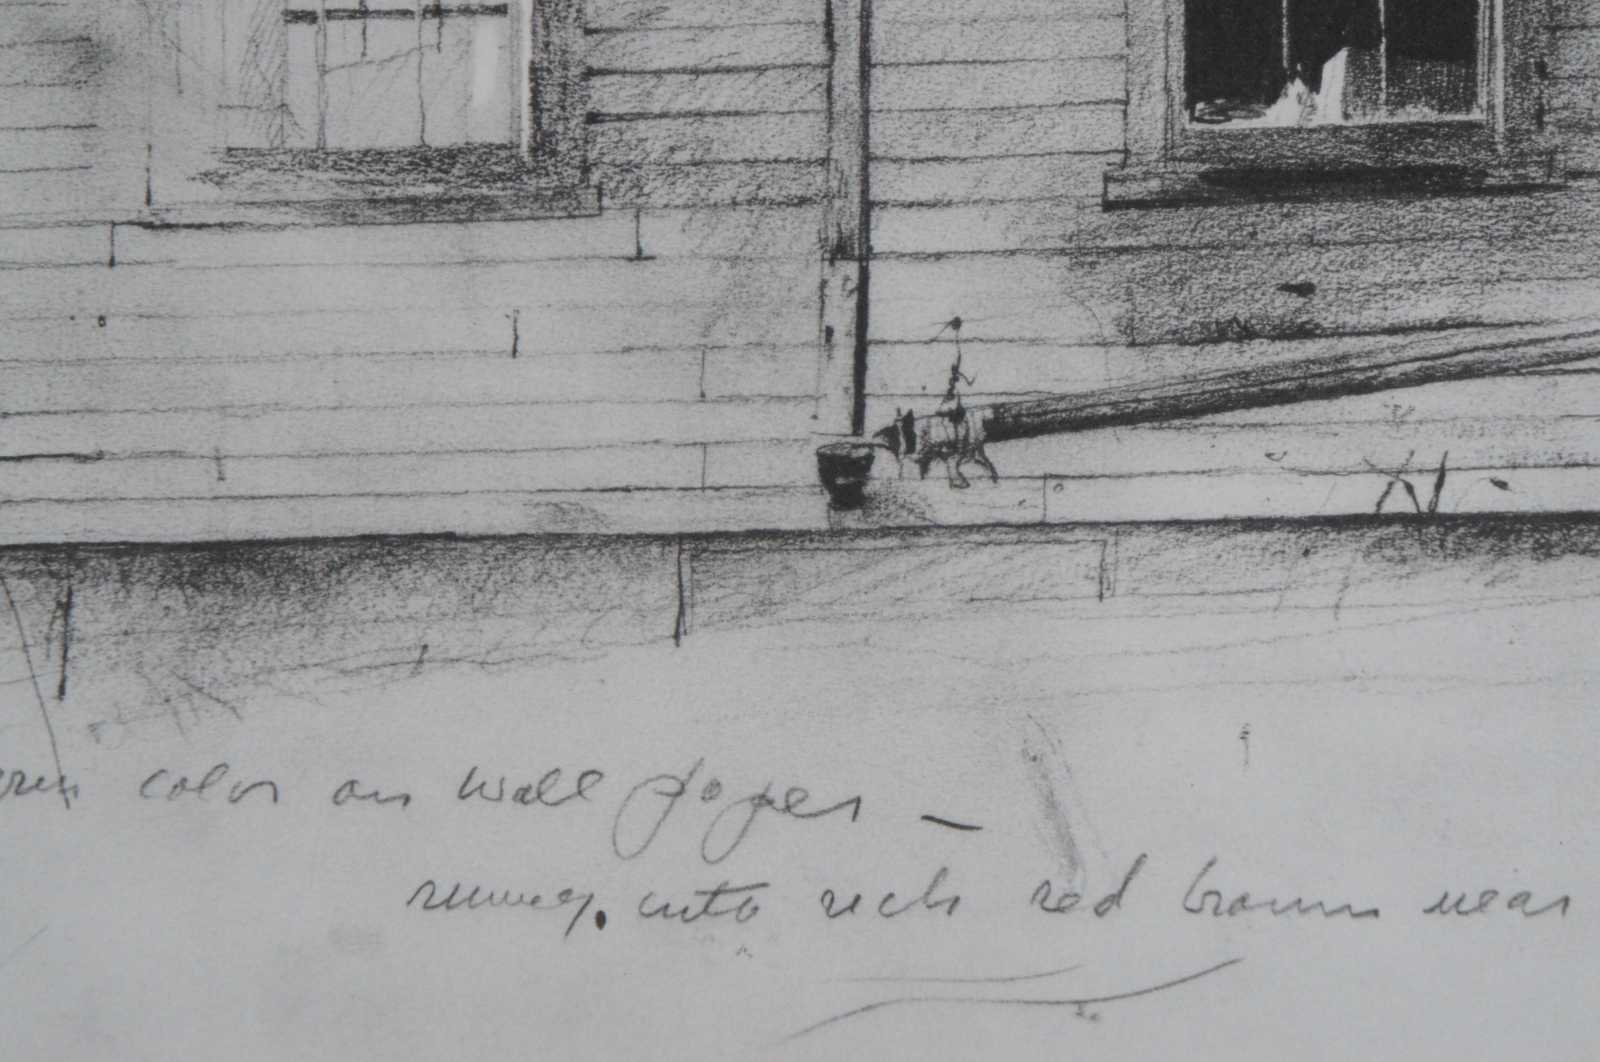 color on wall paper –
into rich red brown near